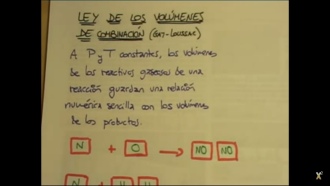 LEY DE LOS VOLÚMENES
DE COMBINACIÓN (GAY-LUSSAC)
A P y T constantes, los volúmenes
de los reactivos gaseosos de una
reacción guardan una relación
numérica sencilla con los volúmenes
de los productos.
N + O → NO NO
N + H H